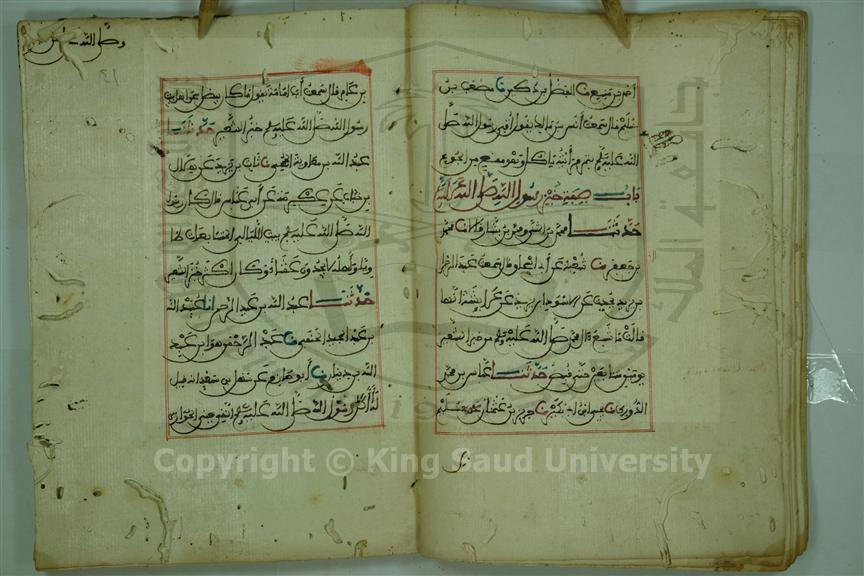 أحمد بن منيع نا الفضل بن دكين نا مصعب بن
سليم قال سمعت أنس بن مالك يقول أتي رسول الله صلى
الله عليه وسلم بتمر فرأيته يأكل وهو مقع من الجوع
باب صفة خبز رسول الله صلى الله عليه
حدثنا محمد بن المثنى ومحمد بن بشار قالا نا محمد
بن جعفر نا شعبة عن أبي إسحاق قال سمعت عبد الرحمن
بن يزيد يحدث عن الأسود بن يزيد عن عائشة أنها
قالت ما شبع آل محمد صلى الله عليه وسلم من خبز الشعير
يومين متتابعين حتى قبض حدثنا عباس بن محمد
الدوري نا يحيى بن أبي بكير نا حريز بن عثمان عن سليم
وصلى الله
٤١
بن عامر قال سمعت أبا أمامة يقول ما كان يفضل عن أهل بيت
رسول الله صلى الله عليه وسلم خبز الشعير حدثنا
عبد الله بن معاوية الجمحي نا ثابت بن يزيد عن هلال
بن خباب عن عكرمة عن ابن عباس قال كان رسول
الله صلى الله عليه وسلم يبيت الليالي المتتابعة طاويا
وأهله لا يجدون عشاء وكان أكثر خبزهم خبز الشعير
حدثنا عبد الله بن عبد الرحمن انا عبيد الله
بن عبد المجيد الحنفي نا عبد الرحمن وهو ابن عبد
الله بن دينار نا أبو حازم عن سهل بن سعد انه قيل
له أكل رسول الله صلى الله عليه وسلم النقي يعني الحوارى
Copyright © King Saud University